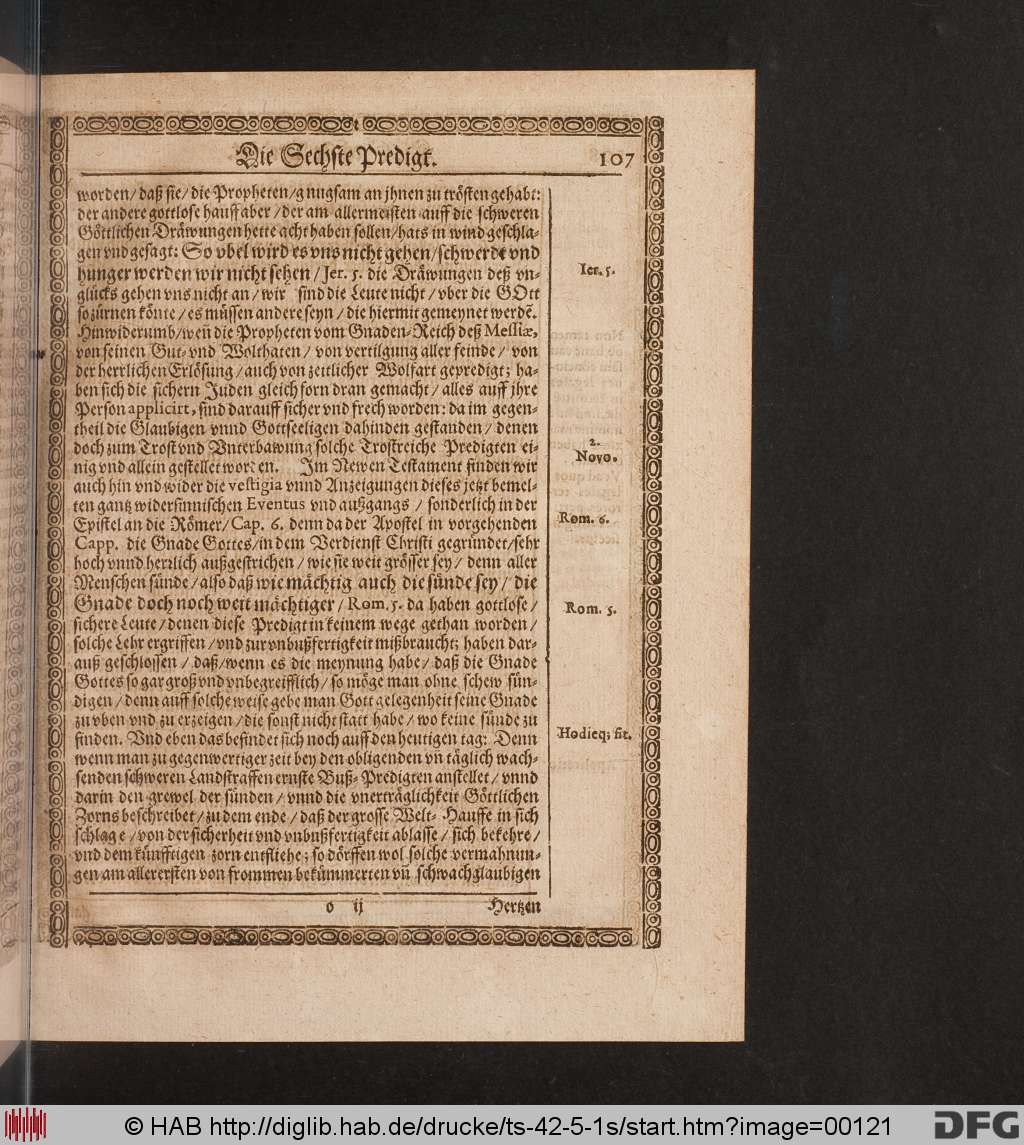 Die Sechste Predigt. 107
worden/ daß sie/ die Propheten/ gnugsam an jhnen zu trösten gehabt:
der andere gottlose hauff aber/ der am allermeisten auff die schweren
Göttlichen Dräwungen hette acht haben sollen/ hats in wind geschla-
gen vnd gesagt: So vbel wird es vns nicht gehen/ schwerdt vnd
hunger werden wir nicht sehen/ Jer. 5. die Dräwungen deß vn-
Ier. 5.
glücks gehen vns nicht an/ wir sind die Leute nicht/ vber die GOtt
so zürnen könte/ es müssen andere seyn/ die hiermit gemeynet werdē.
Hinwiderumb/ weñ die Propheten vom Gnaden-Reich deß Messiæ,
von seinen Gut- vnd Wolthaten/ von vertilgung aller feinde/ von
der herrlichen Erlösung/ auch von zeitlicher Wolfart gepredigt; ha-
ben sich die sichern Juden gleich forn dran gemacht/ alles auff jhre
Person applicirt, sind darauff sicher vnd frech worden: da im gegen-
theil die Glaubigen vnnd Gottseeligen dahinden gestanden/ denen
doch zum Trost vnd Vnterbawung solche Trostreiche Predigten ei-
2.
Novo.
nig vnd allein gestellet worden. Im Newen Testament finden wir
auch hin vnd wider die vestigia vnnd Anzeigungen dieses jetzt bemel-
ten gantz widersinnischen Eventus vnd außgangs/ sonderlich in der
Epistel an die Römer/ Cap. 6. denn da der Apostel in vorgehenden
Rom. 6.
Capp. die Gnade Gottes/ in dem Verdienst Christi gegründet/ sehr
hoch vnnd herrlich außgestrichen/ wie sie weit grösser sey/ denn aller
Menschen sünde/ also daß wie mächtig auch die sünde sey/ die
Gnade doch noch weit mächtiger/ Rom. 5. da haben gottlose/
Rom. 5.
sichere Leute/ denen diese Predigt in keinem wege gethan worden/
solche Lehr ergriffen/ vnd zur vnbußfertigkeit mißbraucht; haben dar-
auß geschlossen/ daß/ wenn es die meynung habe/ daß die Gnade
Gottes so gar groß vnd vnbegreifflich/ so möge man ohne schew sün-
digen/ denn auff solche weise gebe man Gott gelegenheit seine Gnade
zu vben vnd zu erzeigen/ die sonst nicht statt habe/ wo keine sünde zu
finden. Vnd eben das befindet sich noch auff den heutigen tag: Denn
Hodieq; fit.
wenn man zu gegenwertiger zeit bey den obligenden vñ täglich wach-
senden schweren Landstraffen ernste Buß-Predigten anstellet/ vnnd
darin den grewel der sünden/ vnnd die vnerträglichkeit Göttlichen
Zorns beschreibet/ zu dem ende/ daß der grosse Welt-Hauffe in sich
schlage/ von der sicherheit vnd vnbußfertigkeit ablasse/ sich bekehre/
vnd dem künfftigen zorn entfliehe; so dörffen wol solche vermahnun-
gen am allerersten von frommen bekümmerten vñ schwachglaubigen
o ij Hertzen
© HAB http://diglib.hab.de/drucke/ts-42-5-1s/start.htm?image=00121
DFG